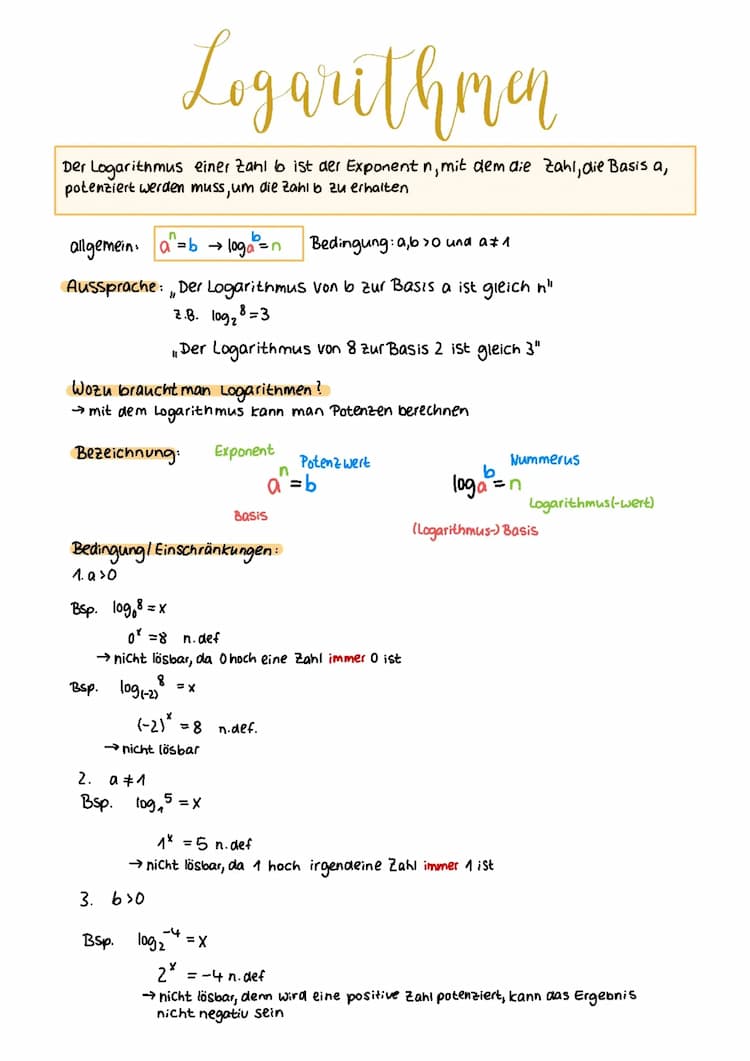 Logarithmen
Der Logarithmus einer Zahl b ist der Exponent n, mit dem die Zahl, die Basis a,
potenziert werden muss, um die Zahl b zu erhalten
allgemein: aⁿ = b → logₐᵇ = n Bedingung: a,b >0 und a≠1
Aussprache: „Der Logarithmus von b zur Basis a ist gleich n"
z.B. log₂⁸ = 3
„Der Logarithmus von 8 zur Basis 2 ist gleich 3"
Wozu braucht man Logarithmen?
→ mit dem Logarithmus kann man Potenzen berechnen
Bezeichnung: Exponent Potenzwert Nummerus
aⁿ = b logₐᵇ = n
Basis Logarithmus(-wert)
(Logarithmus-) Basis
Bedingung / Einschränkungen:
1. a >0
Bsp. log₀⁸ = x
0ˣ = 8 n.def
→ nicht lösbar, da 0 hoch eine Zahl immer 0 ist
Bsp. log₍₋₂₎⁸ = x
(-2)ˣ = 8 n.def.
→ nicht lösbar
2. a ≠ 1
Bsp. log₁⁵ = x
1ˣ = 5 n.def
→ nicht lösbar, da 1 hoch irgendeine Zahl immer 1 ist
3. b >0
Bsp. log₂⁻⁴ = x
2ˣ = -4 n.def
→ nicht lösbar, denn wird eine positive Zahl potenziert, kann das Ergebnis
nicht negativ sein